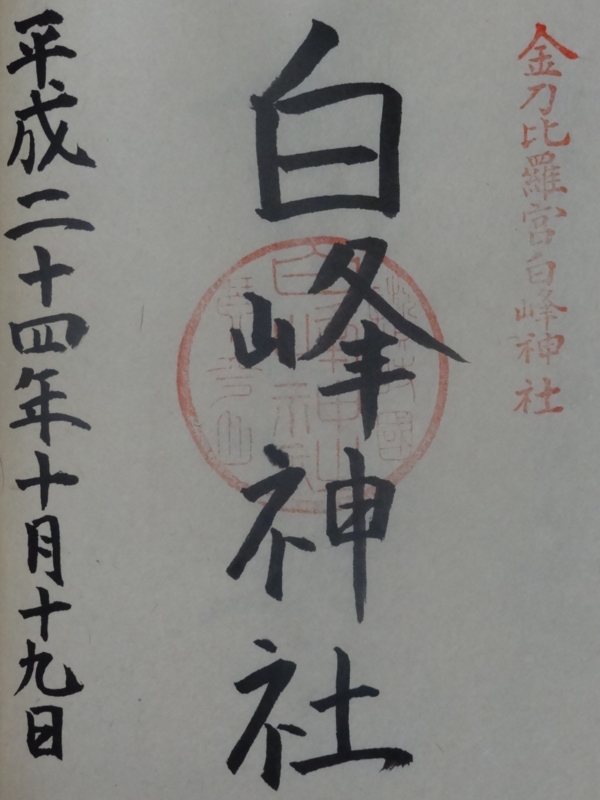 金刀比羅宮白峰神社
白峰神社
平成二十四年十月十九日